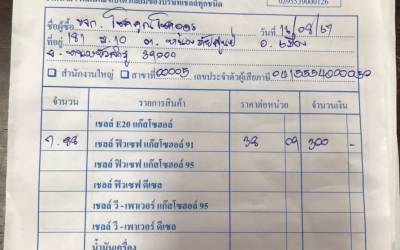 0395539000126
ชื่อผู้ซื้อ หจก. โชคคูณโชคถาวร วันที่ 16/08/67
ที่อยู่ 181 ม.10 ต. หนองบัว อ. เมือง
จ. หนองบัวลำภู 39000
สำนักงานใหญ่ สาขาที่ 00005 เลขประจำตัวผู้เสียภาษี
จำนวน รายการสินค้า ราคาต่อหน่วย จำนวนเงิน
เชลล์ E20 แก๊สโซฮอล์
7.88 เชลล์ ฟิวเซฟ แก๊สโซฮอล์ 91 38 09 300 -
เชลล์ ฟิวเซฟ แก๊สโซฮอล์ 95
เชลล์ ฟิวเซฟ ดีเซล
เชลล์ วี - เพาเวอร์ แก๊สโซฮอล์ 95
เชลล์ วี - เพาเวอร์ ดีเซล
น้ำมันเครื่อง